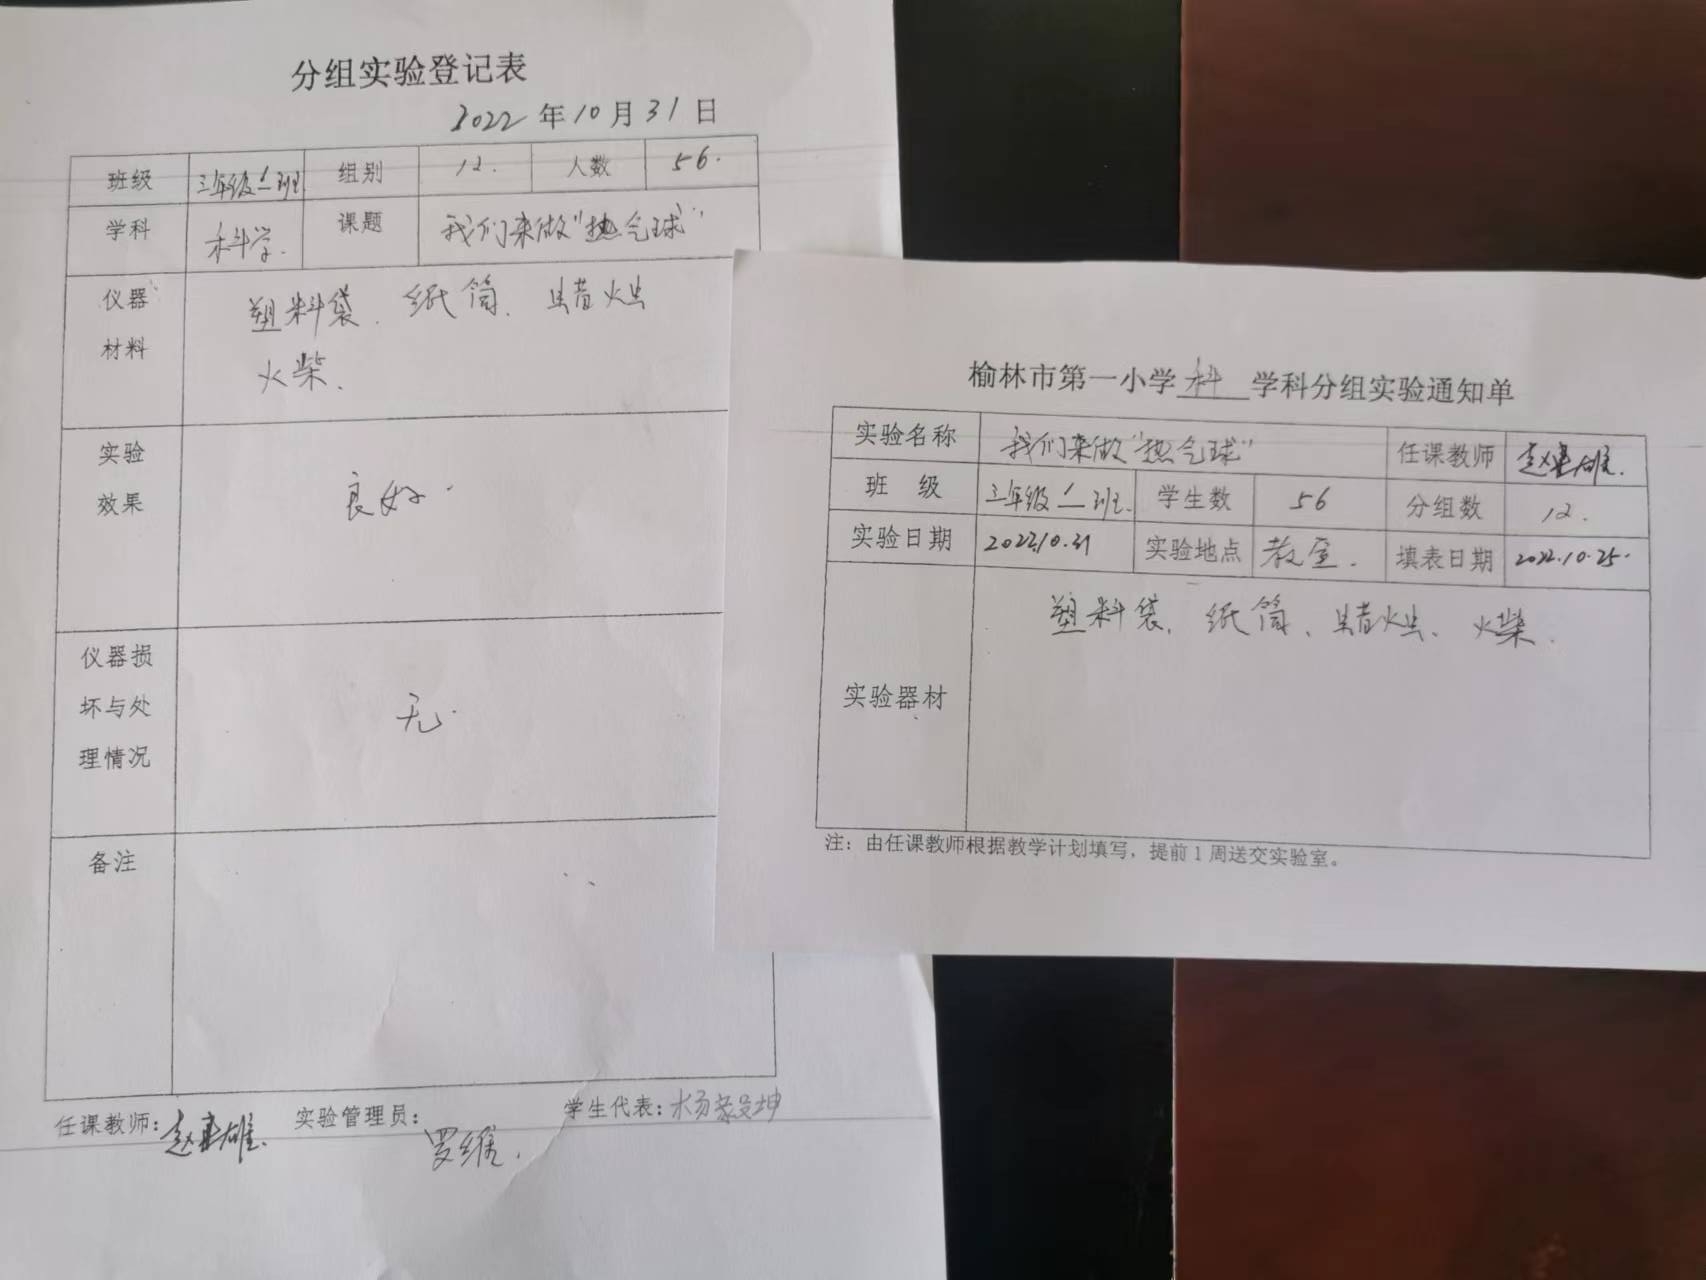 分组实验登记表
2022年10月31日
班级 三年级1班 组别 12. 人数 56.
学科 科学. 课题 我们来做"热气球"
仪器材料 塑料袋、纸筒、蜡烛
火柴.
实验效果 良好.
仪器损坏与处理情况 无.
备注
任课教师: 实验管理员: 罗维. 学生代表:
榆林市第一小学科学科分组实验通知单
实验名称 我们来做"热气球" 任课教师
班 级 三年级1班. 学生数 56 分组数 12.
实验日期 2022.10.31 实验地点 教室. 填表日期 2022.10.25.
实验器材 塑料袋、纸筒、蜡烛、火柴.
注：由任课教师根据教学计划填写，提前1周送交实验室。